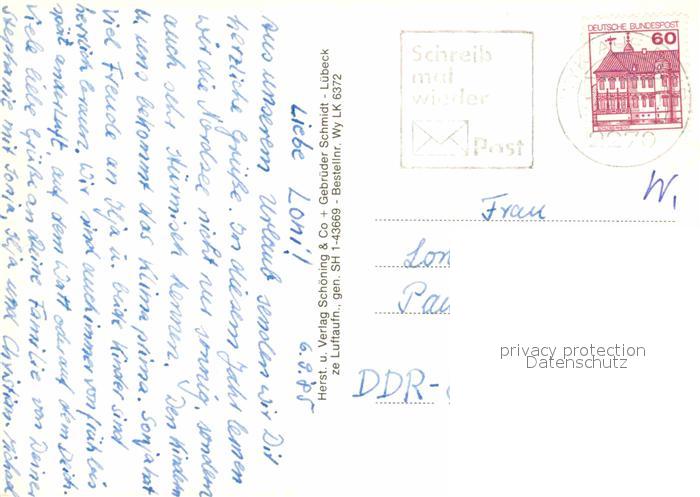 6.8.85
Liebe Loni!
Aus unserem Urlaub senden wir Dir
herzliche Grüße. In diesem Jahr lernen
wir die Nordsee nicht nur sonnig, sondern
auch sehr stürmisch kennen. Den Kindern
u. uns bekommt das Klima prima. Sonja hat
viel Freude an Ilja u. beide Kinder sind
herrlich braun, wir sind auch immer von früh bis
spät an der Luft, auf dem Watt oder auf dem Deich.
Viele liebe Grüße an deine Familie von Deiner
Stephanie mit Sonja, Ilja und Christian-Michael
Herst. u. Verlag Schöning & Co + Gebrüder Schmidt - Lübeck
ze Luftaufn., gen. SH 1-43669 - Bestellnr. Wy LK 6372
Schreib
mal
wieder
Post
DEUTSCHE BUNDESPOST
60
W,
Frau
Lon
Pau
DDR-
privacy protection
Datenschutz